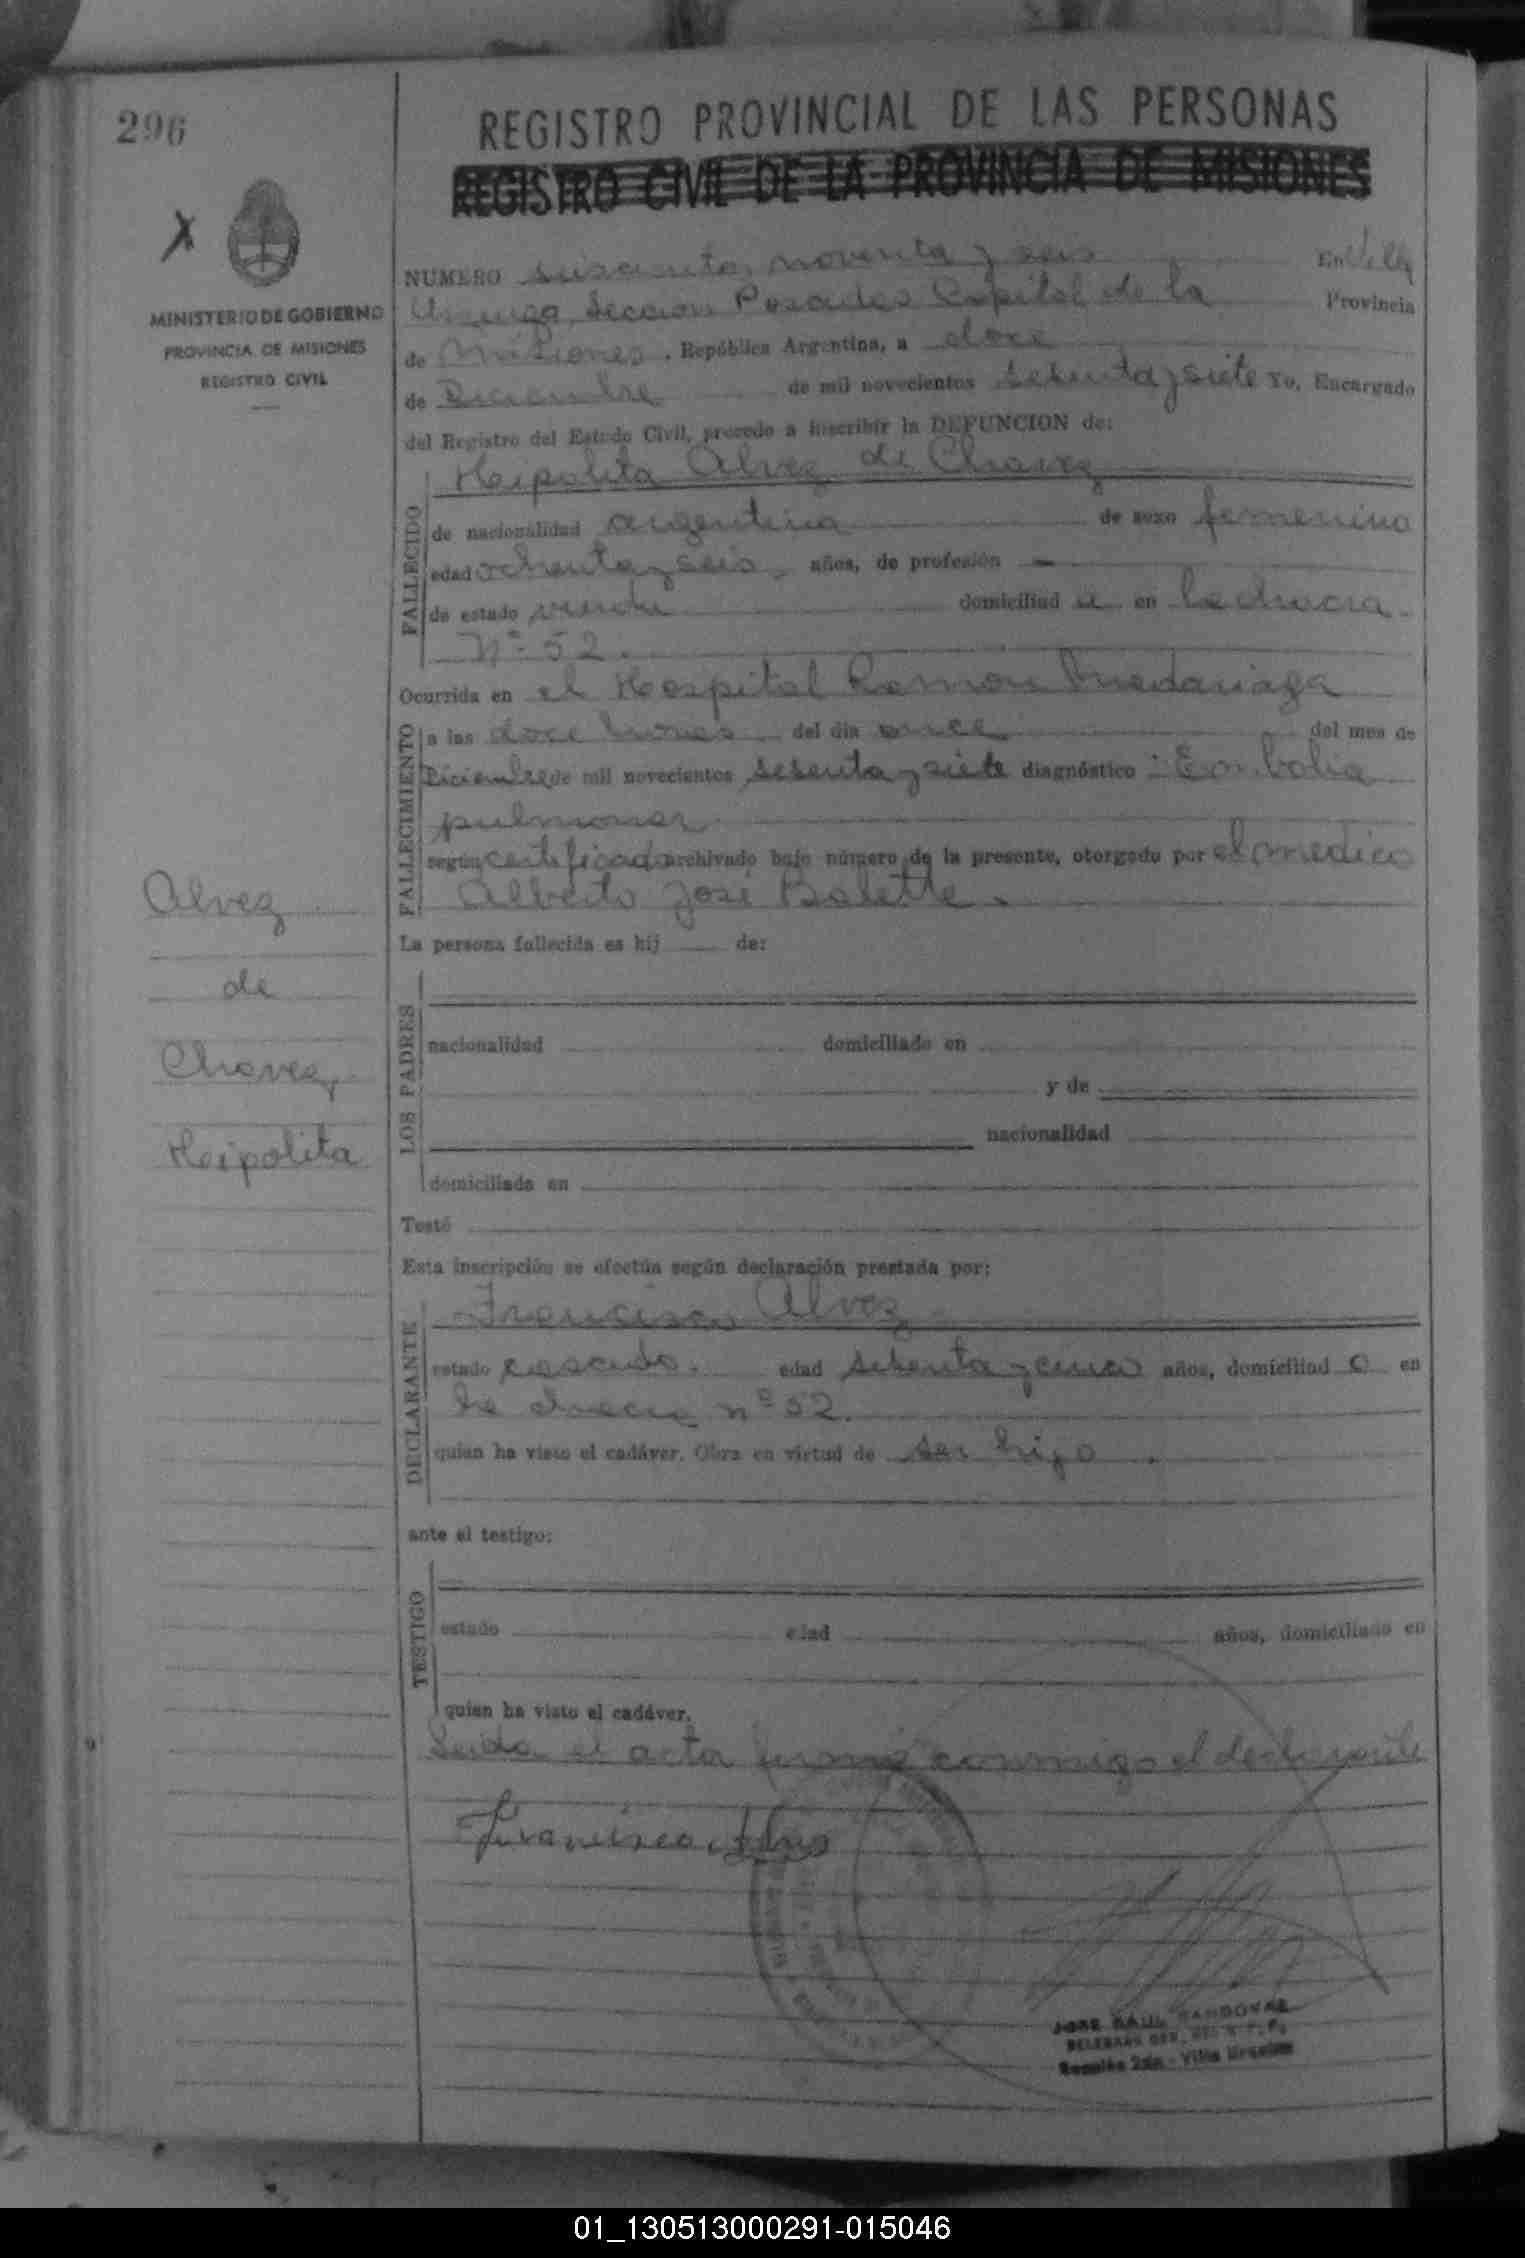 296
REGISTRO PROVINCIAL DE LAS PERSONAS
REGISTRO CIVIL DE LA PROVINCIA DE MISIONES
MINISTERIO DE GOBIERNO
PROVINCIA DE MISIONES
REGISTRO CIVIL
NUMERO seiscientos noventa y seis En Villa
Urquiza Sección Posadas Capital de la Provincia
de Misiones, República Argentina, a doce
de Diciembre de mil novecientos sesenta y siete Yo, Encargado
del Registro del Estado Civil, procedo a inscribir la DEFUNCION de:
Heipolita Alvez de Chavez
FALLECIDO
de nacionalidad argentina de sexo femenino
edad ochenta y seis años, de profesión —
de estado viuda domiciliad a en la chacra
Nº 52.
Ocurrida en el Hospital Ramon Madariaga
FALLECIMIENTO
a las doce horas del día once del mes de
Diciembre de mil novecientos sesenta y siete diagnóstico: Embolia
pulmonar
según certificado archivado bajo número de la presente, otorgado por el medico
Alberto José Balette.
Alvez
de
Chavez,
Heipolita
La persona fallecida es hij de:
LOS PADRES
nacionalidad domiciliado en
y de
nacionalidad
domiciliada en
Testó
Esta inscripción se efectúa según declaración prestada por:
DECLARANTE
Francisco Alvez
estado casado. edad sesenta y cinco años, domiciliad o en
la chacra nº 52.
quien ha visto el cadáver. Obra en virtud de ser hijo.
ante el testigo:
TESTIGO
estado edad años, domiciliado en
quien ha visto el cadáver.
Leida el acta firmó conmigo el declarante
Francisco
JOSE RAUL SANDOVAL
Sección 2da - Villa Urquiza
01_130513000291-015046